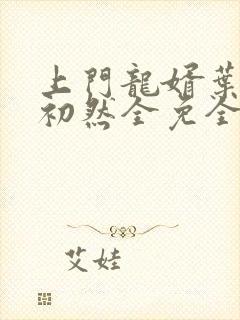 上門龍婿葉
初然全免全
艾娃